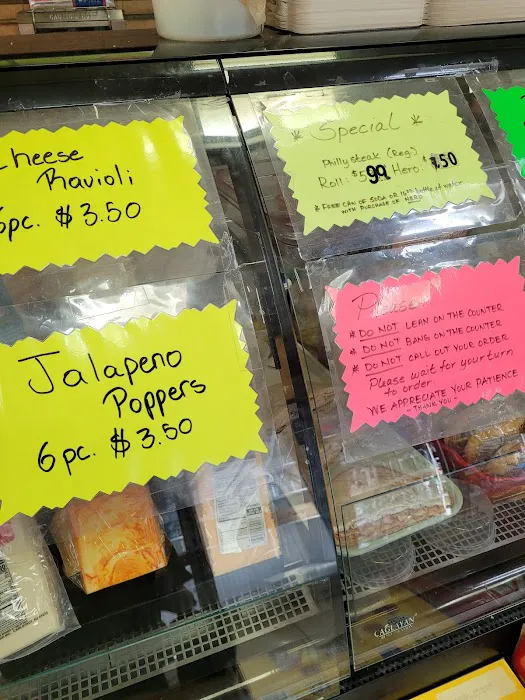 Cheese
Ravioli
6pc. $3.50
Jalapeno
Poppers
6pc. $3.50
* Special *
Philly steak (Reg)
Roll: $5.99 Hero: $7.50
* FREE CAN OF SODA OR bottle of water
WITH PURCHASE OF HERO
Please
* DO NOT LEAN ON THE COUNTER
* DO NOT BANG ON THE COUNTER
* DO NOT CALL OUT YOUR ORDER
Please wait for your turn
to order
WE APPRECIATE YOUR PATIENCE
- THANK YOU -
CAGLAYAN